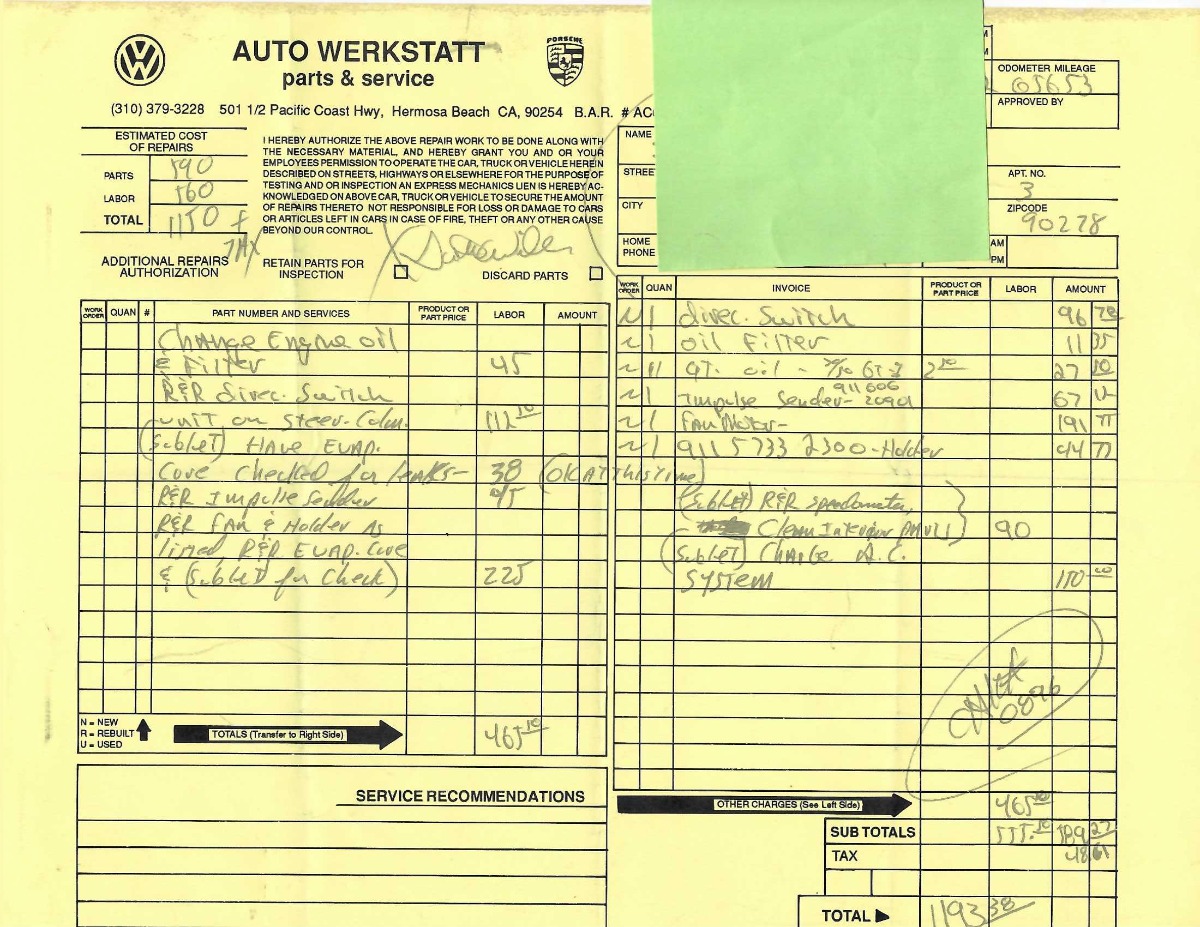 AUTO WERKSTATT
parts & service
PORSCHE
(310) 379-3228 501 1/2 Pacific Coast Hwy, Hermosa Beach CA, 90254 B.A.R. # AC
ODOMETER MILEAGE
65653
APPROVED BY
ESTIMATED COST
OF REPAIRS
PARTS 590
LABOR 560
TOTAL 1150 +
TAX
I HEREBY AUTHORIZE THE ABOVE REPAIR WORK TO BE DONE ALONG WITH
THE NECESSARY MATERIAL, AND HEREBY GRANT YOU AND OR YOUR
EMPLOYEES PERMISSION TO OPERATE THE CAR, TRUCK OR VEHICLE HEREIN
DESCRIBED ON STREETS, HIGHWAYS OR ELSEWHERE FOR THE PURPOSE OF
TESTING AND OR INSPECTION AN EXPRESS MECHANICS LIEN IS HEREBY AC-
KNOWLEDGED ON ABOVE CAR, TRUCK OR VEHICLE TO SECURE THE AMOUNT
OF REPAIRS THERETO NOT RESPONSIBLE FOR LOSS OR DAMAGE TO CARS
OR ARTICLES LEFT IN CARS IN CASE OF FIRE, THEFT OR ANY OTHER CAUSE
BEYOND OUR CONTROL.
ADDITIONAL REPAIRS
AUTHORIZATION
RETAIN PARTS FOR
INSPECTION
DISCARD PARTS
NAME
STREE
CITY
HOME
PHONE
APT. NO.
3
ZIPCODE
90278
AM
PM
WORK ORDER QUAN # PART NUMBER AND SERVICES PRODUCT OR PART PRICE LABOR AMOUNT
Change Engine oil
& Filter 45
R&R direc. Switch
unit on steer. Colm. 112 10
(Sublet) HAVE EVAP.
Core checked for leaks- 38 (OK AT This Time)
R&R Impulse Sender 45
R&R FAN & Holder As
listed, R&R EVAP. Core
& (Sublet for Check) 225
N = NEW
R = REBUILT
U = USED
TOTALS (Transfer to Right Side) 465 10
SERVICE RECOMMENDATIONS
WORK ORDER QUAN INVOICE PRODUCT OR PART PRICE LABOR AMOUNT
N 1 direc. Switch 96 78
N 1 oil Filter 11 35
N 11 QT. oil - 20/50 GT-1 2 50 27 50
N 1 Impulse Sender- 911 606 20901 67 12
N 1 FAN Motor- 191 75
N 1 911 5733 2300-Holder 44 77
(Sublet) R&R speedometer,
Clean Interior 90
(Sublet) Charge A.C.
System 150 00
0896
OTHER CHARGES (See Left Side) 465 10
SUB TOTALS 555.10 589 27
TAX 48 61
TOTAL 1193 38